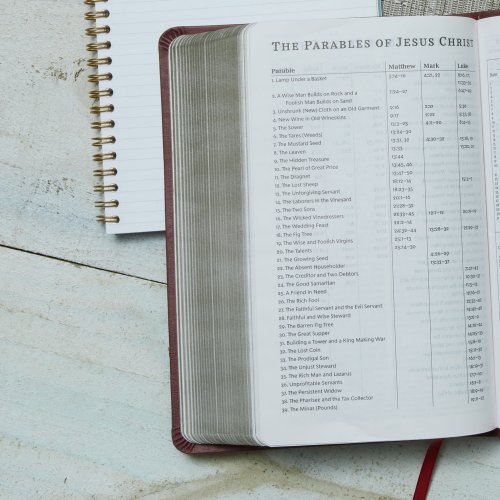 THE PARABLES OF JESUS CHRIST
Parable Matthew Mark Luke
1. Lamp Under a Basket 5:14–16 4:21, 22 8:16, 17
11:33–36
2. A Wise Man Builds on Rock and a 7:24–27 6:47–49
Foolish Man Builds on Sand
3. Unshrunk (New) Cloth on an Old Garment 9:16 2:21 5:36
4. New Wine in Old Wineskins 9:17 2:22
5. The Sower
6. The Tares (Weeds) 13:24–30
7. The Mustard Seed 13:31, 32 4:30–32
8. The Leaven 13:33
9. The Hidden Treasure 13:44
10. The Pearl of Great Price 13:45, 46
11. The Dragnet 13:47–50
12. The Lost Sheep 18:12–14
13. The Unforgiving Servant 18:23–35
14. The Laborers in the Vineyard 20:1–16
15. The Two Sons 21:28–32
16. The Wicked Vinedressers 21:33–45 12:1–12 20:9–19
17. The Wedding Feast 22:2–14
18. The Fig Tree 24:32–44 13:28–32 21:29–33
19. The Wise and Foolish Virgins 25:1–13
20. The Talents 25:14–30
21. The Growing Seed 4:26–29
22. The Absent Householder 13:33–37
23. The Creditor and Two Debtors
24. The Good Samaritan
25. A Friend in Need
26. The Rich Fool
27. The Faithful Servant and the Evil Servant
28. Faithful and Wise Steward
29. The Barren Fig Tree
30. The Great Supper
31. Building a Tower and a King Making War
32. The Lost Coin
33. The Prodigal Son
34. The Unjust Steward
35. The Rich Man and Lazarus
36. Unprofitable Servants
37. The Persistent Widow
38. The Pharisee and the Tax Collector
39. The Minas (Pounds)